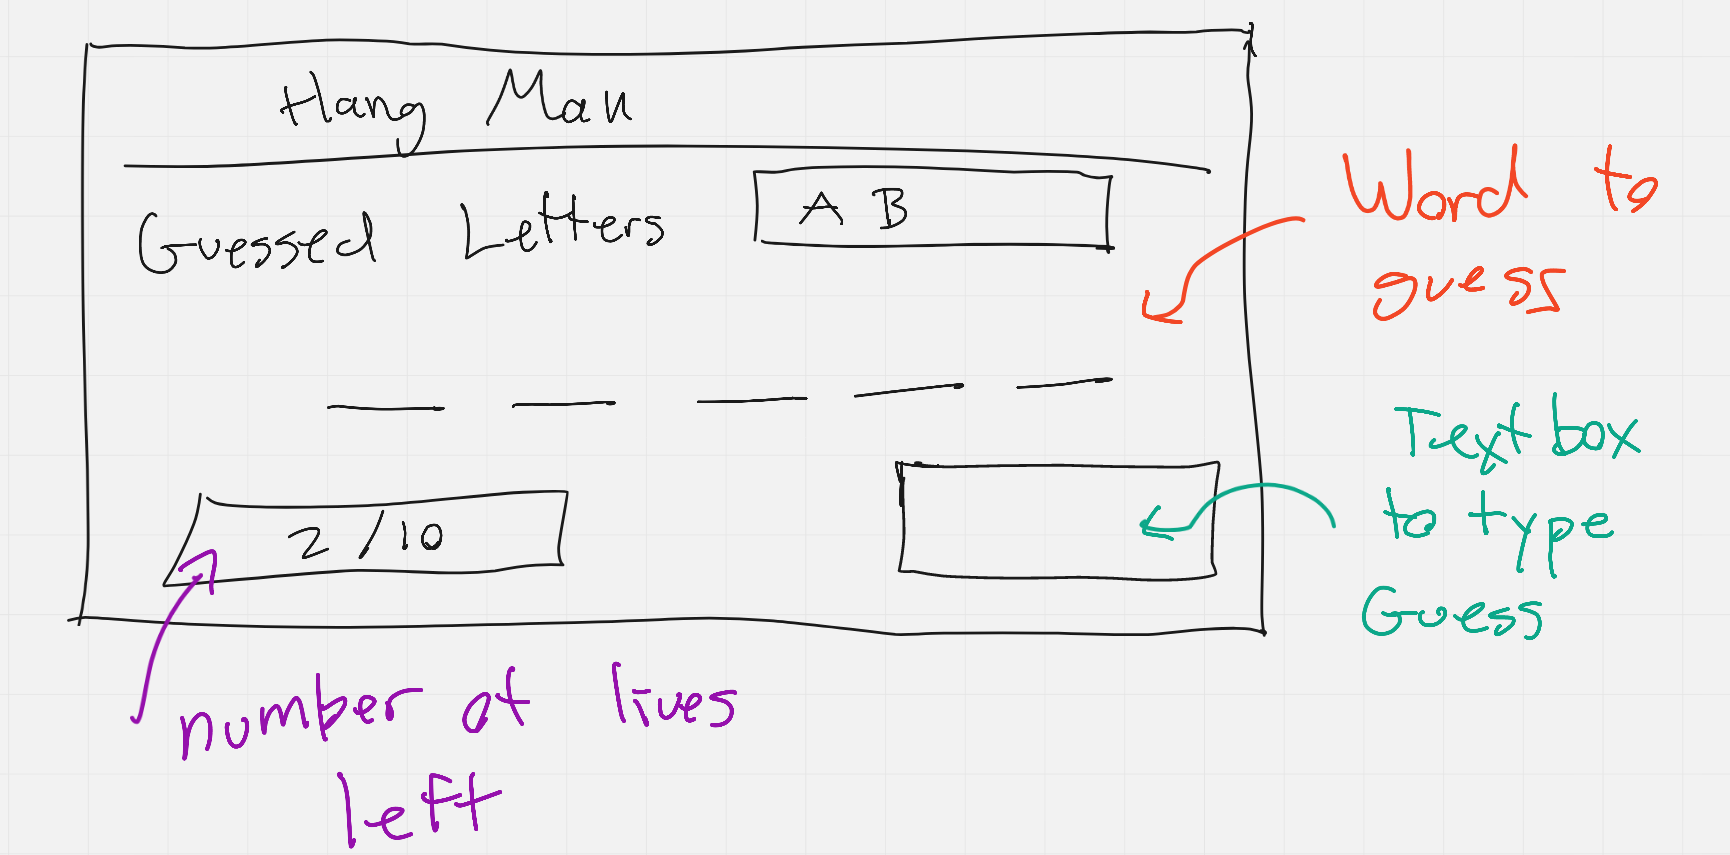 Hang Man
Guessed Letters A B
Word to
guess
Text box
to type
Guess
2 /10
number of lives
left